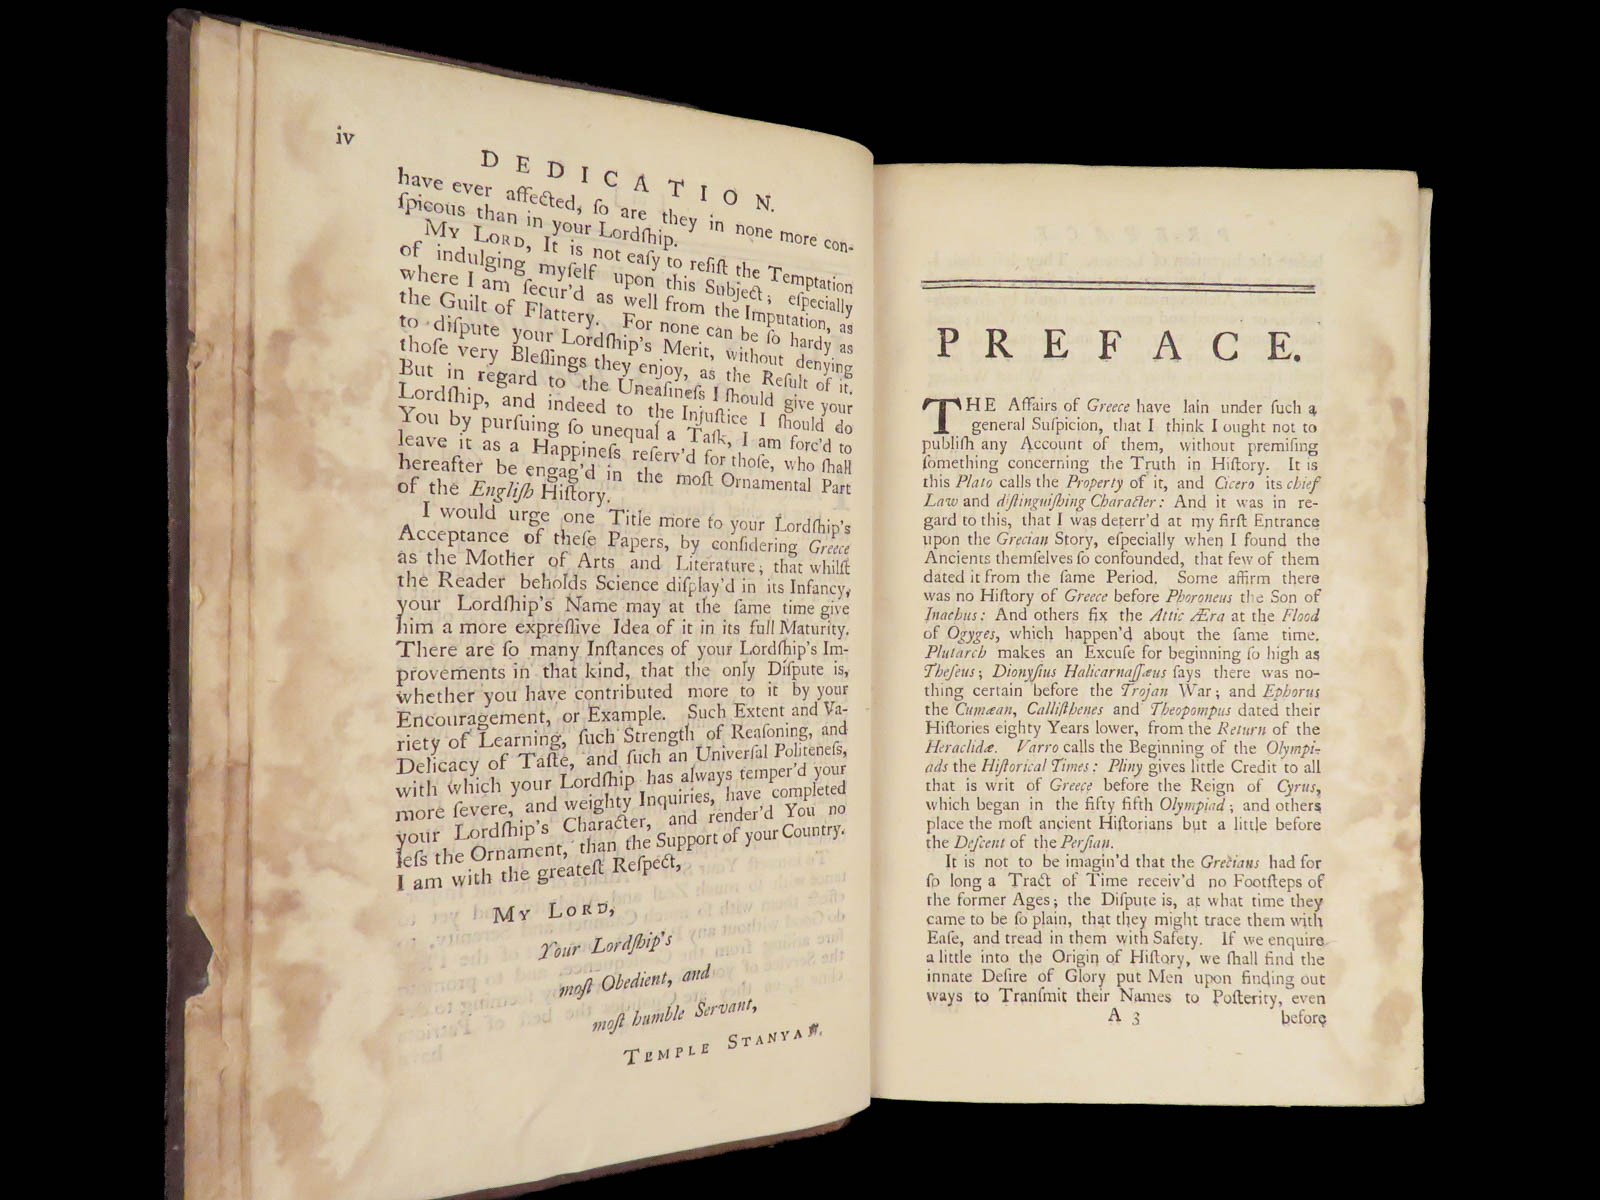 iv
DEDICATION.
have ever affected, ſo are they in none more con-
ſpicous than in your Lordſhip.
My Lord, It is not eaſy to reſiſt the Temptation
of indulging myſelf upon this Subject; eſpecially
where I am ſecur'd as well from the Imputation, as
the Guilt of Flattery. For none can be ſo hardy as
to diſpute your Lordſhip's Merit, without denying
thoſe very Bleſſings they enjoy, as the Reſult of it.
But in regard to the Uneaſineſs I ſhould give your
Lordſhip, and indeed to the Injuſtice I ſhould do
You by purſuing ſo unequal a Taſk, I am forc'd to
leave it as a Happineſs reſerv'd for thoſe, who ſhall
hereafter be engag'd in the moſt Ornamental Part
of the Engliſh Hiſtory.
I would urge one Title more to your Lordſhip's
Acceptance of theſe Papers, by conſidering Greece
as the Mother of Arts and Literature; that whilſt
the Reader beholds Science diſplay'd in its Infancy,
your Lordſhip's Name may at the ſame time give
him a more expreſſive Idea of it in its full Maturity.
There are ſo many Inſtances of your Lordſhip's Im-
provements in that kind, that the only Diſpute is,
whether you have contributed more to it by your
Encouragement, or Example. Such Extent and Va-
riety of Learning, ſuch Strength of Reaſoning, and
Delicacy of Taſte, and ſuch an Univerſal Politeneſs,
with which your Lordſhip has always temper'd your
more ſevere, and weighty Inquiries, have completed
your Lordſhip's Character, and render'd You no
leſs the Ornament, than the Support of your Country.
I am with the greateſt Reſpect,
My Lord,
Your Lordſhip's
moſt Obedient, and
moſt humble Servant,
Temple Stanyan.
PREFACE.
THE Affairs of Greece have lain under ſuch a
general Suſpicion, that I think I ought not to
publiſh any Account of them, without premiſing
ſomething concerning the Truth in Hiſtory. It is
this Plato calls the Property of it, and Cicero its chief
Law and diſtinguiſhing Character: And it was in re-
gard to this, that I was deterr'd at my firſt Entrance
upon the Grecian Story, eſpecially when I found the
Ancients themſelves ſo confounded, that few of them
dated it from the ſame Period. Some affirm there
was no Hiſtory of Greece before Phoroneus the Son of
Inachus: And others fix the Attic Æra at the Flood
of Ogyges, which happen'd about the ſame time.
Plutarch makes an Excuſe for beginning ſo high as
Theſeus; Dionyſius Halicarnaſſæus ſays there was no-
thing certain before the Trojan War; and Ephorus
the Cumæan, Calliſthenes and Theopompus dated their
Hiſtories eighty Years lower, from the Return of the
Heraclidæ. Varro calls the Beginning of the Olympi-
ads the Hiſtorical Times: Pliny gives little Credit to all
that is writ of Greece before the Reign of Cyrus,
which began in the fifty fifth Olympiad; and others
place the moſt ancient Hiſtorians but a little before
the Deſcent of the Perſian.
It is not to be imagin'd that the Grecians had for
ſo long a Tract of Time receiv'd no Footſteps of
the former Ages; the Diſpute is, at what time they
came to be ſo plain, that they might trace them with
Eaſe, and tread in them with Safety. If we enquire
a little into the Origin of Hiſtory, we ſhall find the
innate Deſire of Glory put Men upon finding out
ways to Tranſmit their Names to Poſterity, even
A 3 before